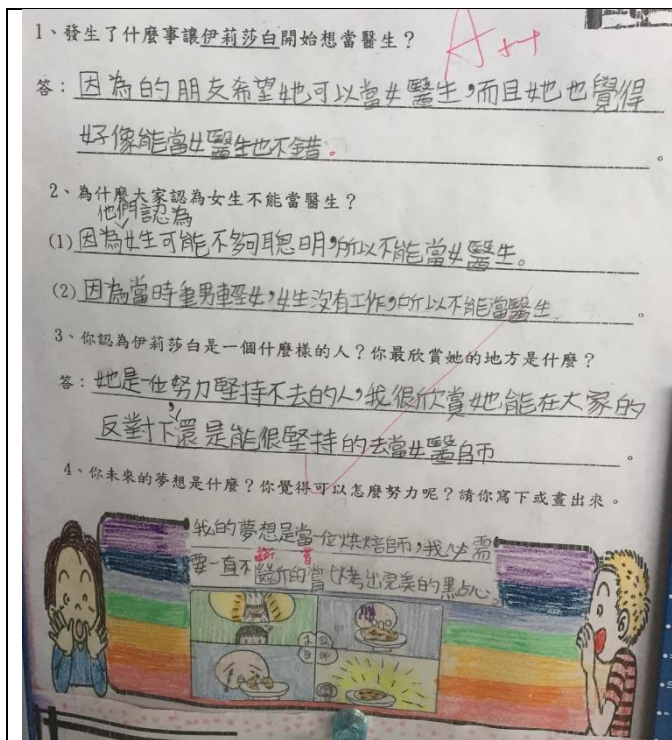 1、發生了什麼事讓伊莉莎白開始想當醫生?
A++
答:因為的朋友希望她可以當女醫生,而且她也覺得
好像能當女醫生也不錯。。
2、為什麼大家認為女生不能當醫生?
他們認為
(1)因為女生可能不夠聰明,所以不能當女醫生。
(2)因為當時重男輕女,女生沒有工作,所以不能當醫生。
3、你認為伊莉莎白是一個什麼樣的人?你最欣賞她的地方是什麼?
答:她是一位努力堅持不去的人,我很欣賞她能在大家的
反對下,還是能很堅持的去當女醫師。
4、你未來的夢想是什麼?你覺得可以怎麼努力呢?請你寫下或畫出來。
我的夢想是當一位烘焙師,我必需
斷 嘗
要一直不斷的嘗烤出完美的點心。